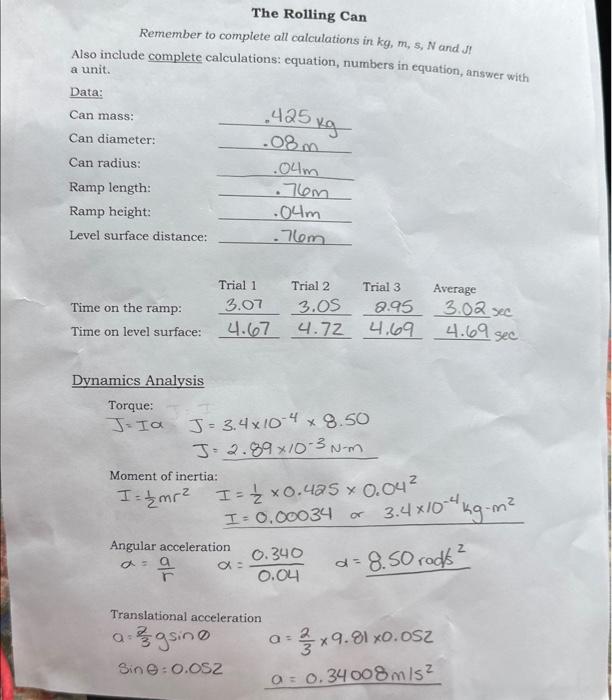 The Rolling Can
Remember to complete all calculations in kg, m, s, N and J!
Also include complete calculations: equation, numbers in equation, answer with
a unit.
Data:
Can mass: .425 kg
Can diameter: .08m
Can radius: .04m
Ramp length: .76m
Ramp height: .04m
Level surface distance: .76m
Trial 1 Trial 2 Trial 3 Average
Time on the ramp: 3.07 3.05 2.95 3.02 sec
Time on level surface: 4.67 4.72 4.69 4.69 sec
Dynamics Analysis
Torque:
J=Iα J = 3.4x10⁻⁴ x 8.50
J = 2.89x10⁻³ N-m
Moment of inertia:
I=½mr² I = ½ x 0.425 x 0.04²
I = 0.00034 or 3.4x10⁻⁴ kg-m²
Angular acceleration
α = a/r α = 0.340/0.04 α = 8.50 rad/s²
Translational acceleration
a=⅔gsinθ a = ⅔ x 9.81 x0.052
Sinθ = 0.052 a = 0.34008m/s²